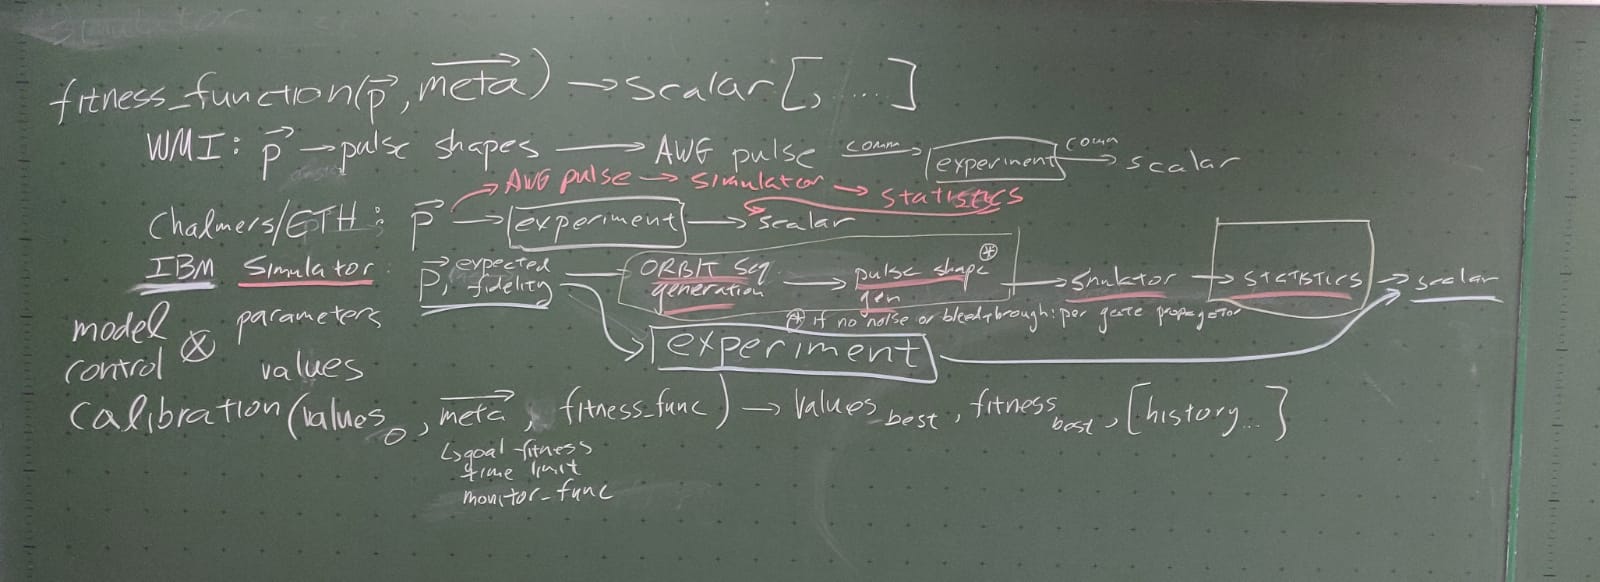 Simulator
fitness_function(p⃗, meta⃗) → scalar[, .....]
WMI: p⃗ → pulse shapes → AWG pulse comm → experiment comm → scalar
→ AWG pulse → simulator → statistics
Chalmers/ETH: p⃗ → experiment → scalar
IBM Simulator: p⃗, expected fidelity → ORBIT seq. generation → pulse shape gen (*) → simulator → statistics → scalar
(*) if no noise or bleedthrough: per gate propagator
experiment
model ⊗ parameters
control values
calibration(values₀, meta⃗, fitness_func) → values best, fitness best, [history...]
↳ goal fitness
time limit
monitor_func